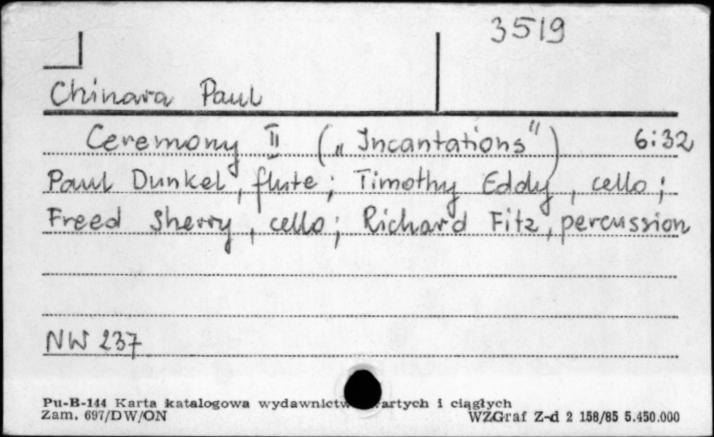 3519
Chinara Paul
Ceremony II („Incantations") 6:32
Paul Dunkel, flute; Timothy Eddy, cello;
Freed Sherry, cello; Richard Fitz, percussion
NW 237
Pu-B-144 Karta katalogowa wydawnictw i ciągłych
Zam. 697/DW/ON WZGraf Z-d 2 158/85 5.450.000